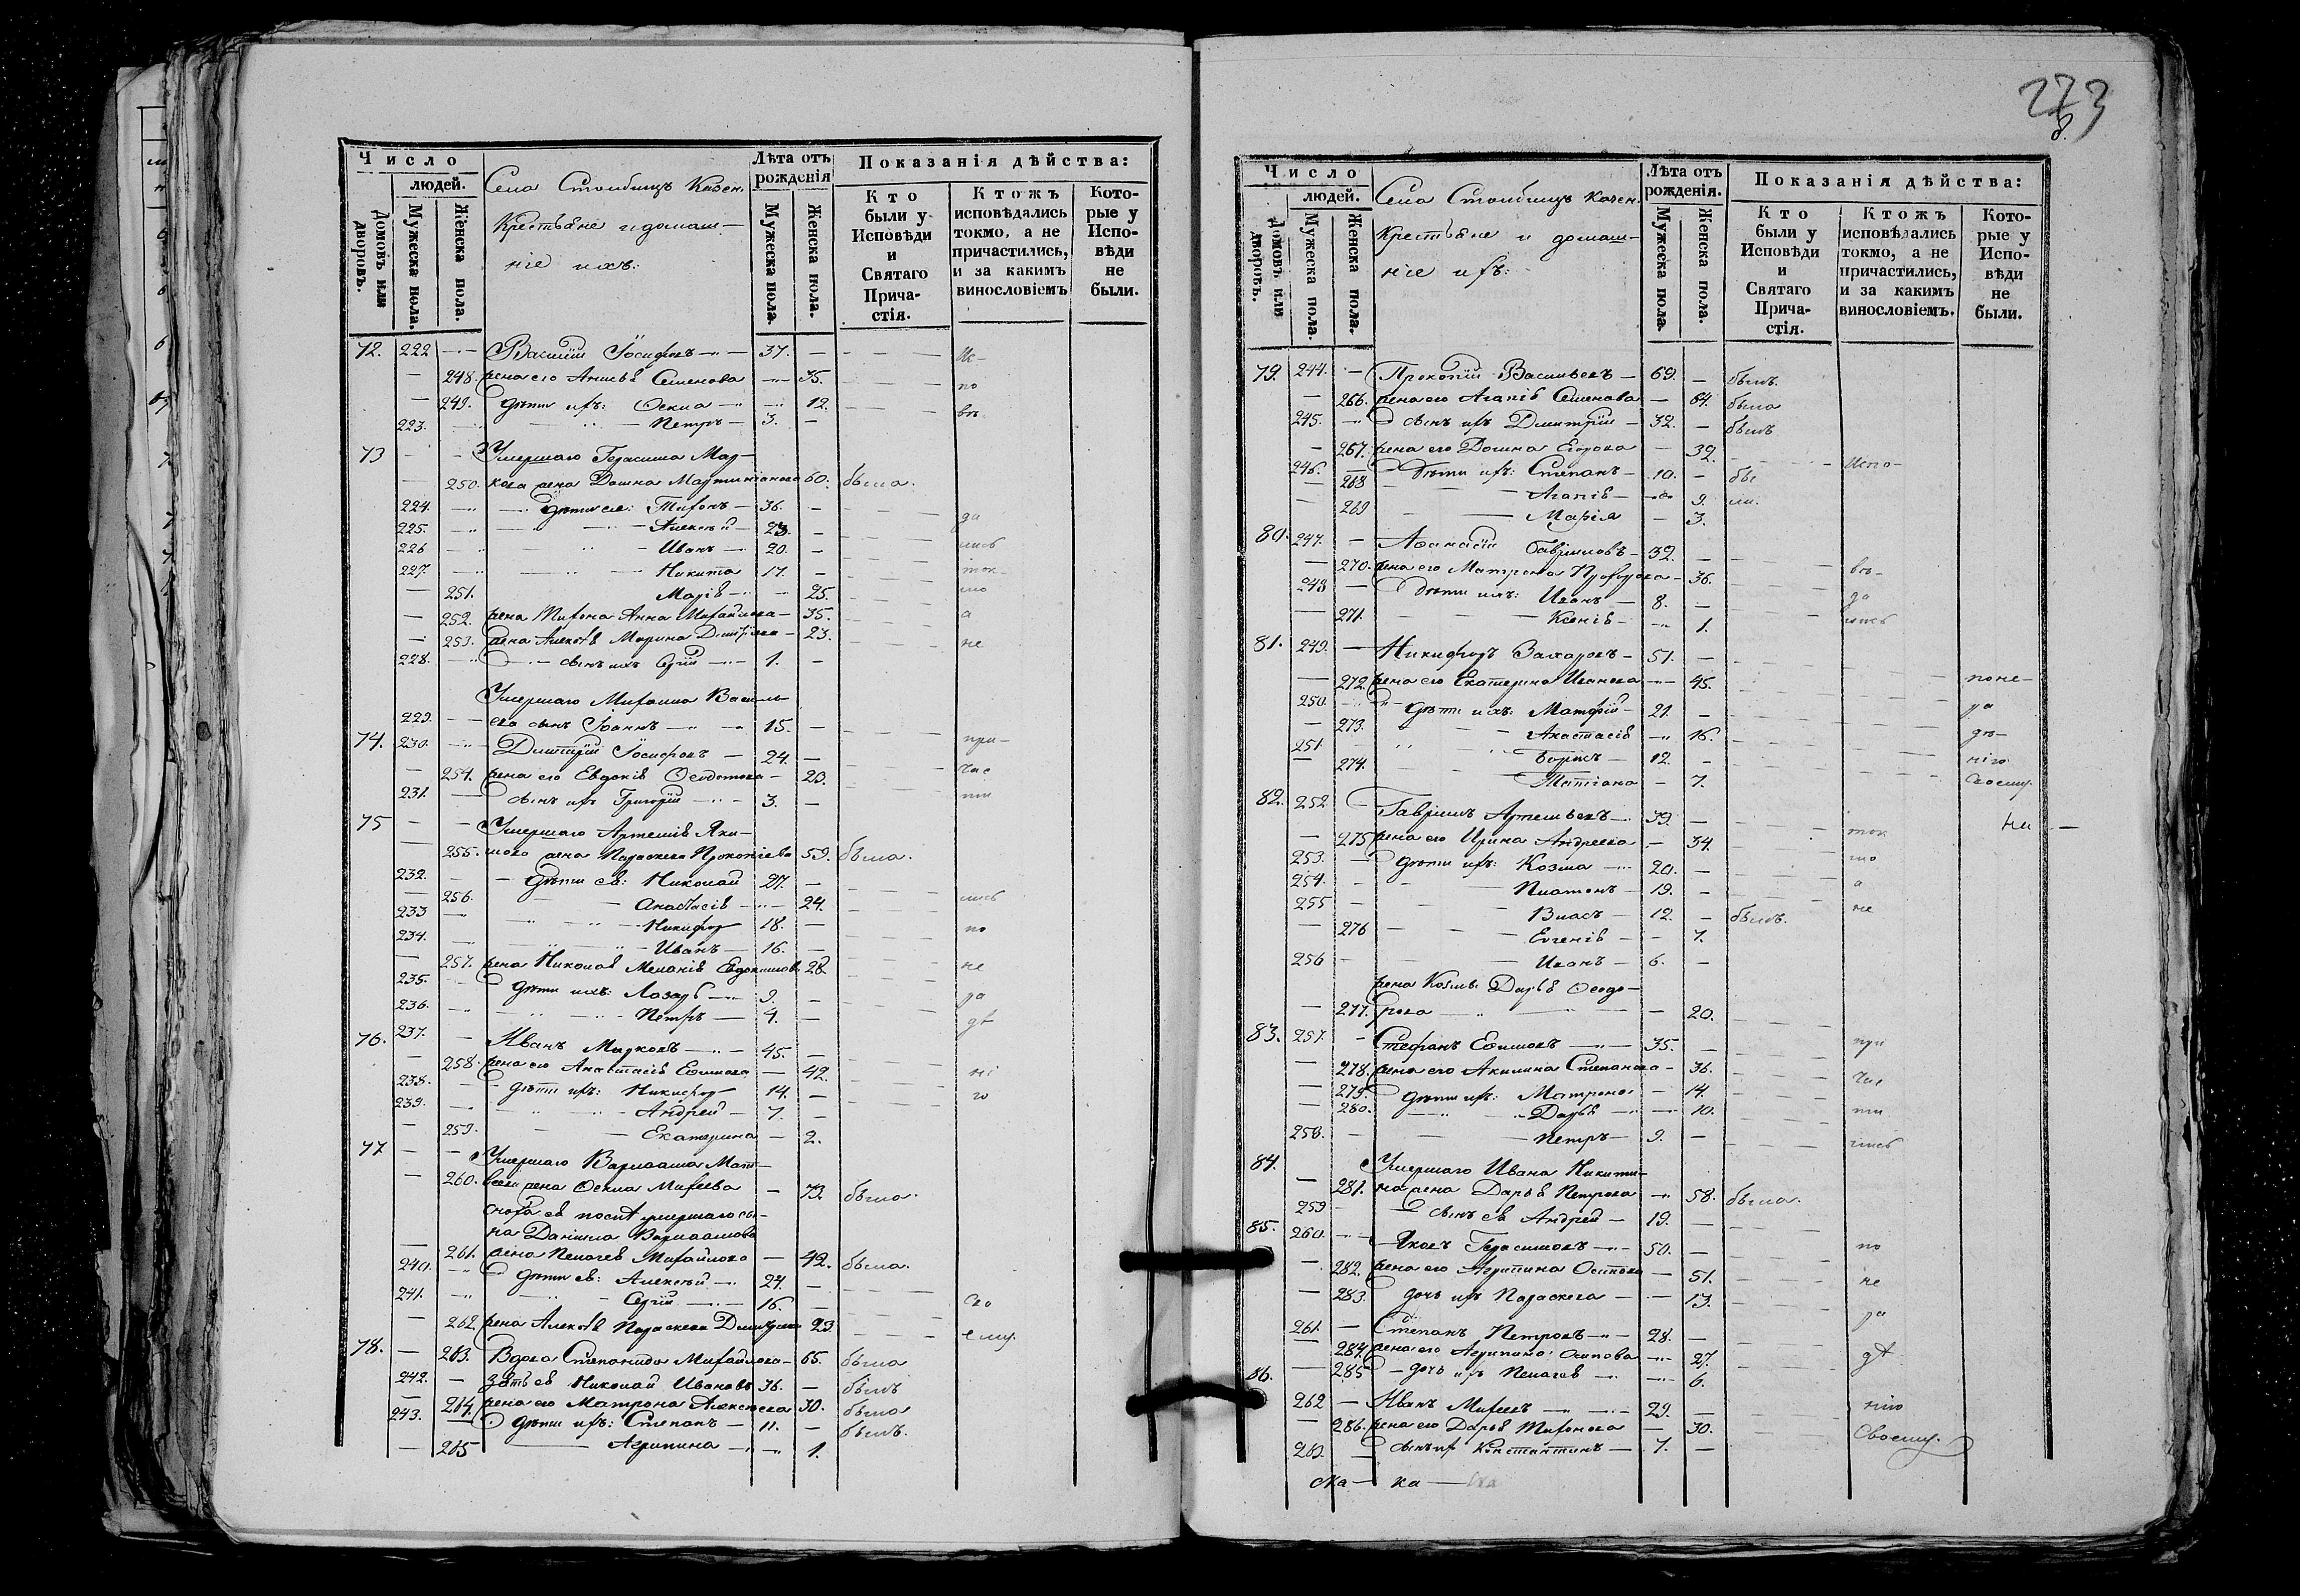 273
Число
людей.
Домовъ или дворовъ.
Мужеска пола.
Женска пола.
Села Столбищъ Казен.
Крестьяне и домаш-
ніе ихъ:
Лѣта отъ рожденія
Мужеска пола.
Женска пола.
Показанія дѣйства:
Кто были у Исповѣди и Святаго Прича-стія.
Ктожъ исповѣдались токмо, а не причастились, и за какимъ винословіемъ
Кото-рые у Испо-вѣди не были.
72. 222 — Василій Іосифовъ — 37. — Ис-
— 248. жена его Анисья Семенова — 35. — по
— 249. дѣти ихъ: Оекла — 12. — вѣ-
223. — Петръ — 3. —
73 — — Умершаго Герасима Мар-
— 250. кова жена Домна Мартиніанова 60. была.
224. — дѣти ея: Тифонъ — 36. — да
225. — Алексѣй — 23. —
226 — Иванъ — 20. — лись
227. — Никита 17. — ток-
— 251. Марія — 25. мо
— 252. жена Тифона Анна Михайлова — 35. а
— 253. жена Алексѣя Марина Димітріева — 23. не
228. — сынъ ихъ Сергій — 1. —
Умершаго Михаила Василь-
229. — ева сынъ Іоаннъ — 15. —
74. 230. — Димитрій Іосифовъ — 24. — при-
— 254. жена его Евдокія Оеодотова — 20. час
231. — сынъ ихъ Григорій — 3. — ти
75 — — Умершаго Артемія Яки-
— 255. мова жена Параскева Прокопіева 59. была.
232. — дѣти ея: Николай 27. —
— 256. Анастасія — 24. лись
233 — Никифор 18. — по
234. — Иванъ — 16. —
— 257. жена Николая Меланія Евдокимова 28. не
235. — дѣти ихъ: Лазарь — 9. — ра
236. — Петръ — 4. — дѣ
76. 237. — Иванъ Марковъ — 45. —
— 258. жена его Анастасія Ефимова — 42. ні
238. — дѣти ихъ: Никифор 14. — го
239. — Андрей — 7. —
— 259. — Екатерина — 2.
77 — — Умершаго Варлаама Мат-
— 260. вѣева жена Оекла Михеева — 73. была.
сноха ея послѣ умершаго сы-
на Даніила Варлаамова
— 261. жена Пелагея Михайлова — 42. была.
240. — дѣти ея: Алексѣй — 24. —
241. — Сергій — 16. — сво
— 262 жена Алексѣя Параскева Димитріева 23 ему.
78. — 263. Вдова Степанида Михайлова — 65. была
242. — зять ея Николай Ивановъ 36. — былъ
— 264. жена его Матрона Алексѣева 30. была
243. дѣти ихъ: Степанъ — 11. — былъ.
— 265 — Агрипина — 1.
Число
людей.
Домовъ или дворовъ.
Мужеска пола.
Женска пола.
Села Столбищъ Казен.
Крестьяне и домаш-
ніе ихъ:
Лѣта отъ рожденія.
Мужеска пола.
Женска пола.
Показанія дѣйства:
Кто были у Исповѣди и Святаго Прича-стія.
Ктожъ исповѣдались токмо, а не причастились, и за какимъ винословіемъ.
Кото-рые у Испо-вѣди не были.
79. 244. — Прокопій Васильевъ — 69. — былъ.
— 266. жена его Агапія Семенова — 64. была
245. — сынъ ихъ Димитрій — 32. — былъ
— 267. жена его Домна Егорова — 32. Испо-
246. — дѣти ихъ: Степанъ — 10. — бы
— 268 — Агапія — 9. ли.
— 269 — Марія — 3.
80. 247. — Афанасій Гавриловъ — 32. —
— 270. жена его Матрона Прохорова — 36. вѣ-
248 — дѣти ихъ: Иванъ — 8. — да
— 271. — Ксенія — 1. лись
81. 249. — Никифоръ Захаровъ — 51. —
— 272. жена его Екатерина Иванова — 45. поне-
250. — дѣти ихъ: Матфій — 21. — ра
— 273. — Анастасія — 16. дѣ-
251. — Борисъ — 12. — нію
— 274. — Татіана — 7. своему.
82. 252 — Гавріилъ Артемьевъ — 39. — ток ни —
— 275 жена его Ирина Андреева — 34. мо
253. — дѣти ихъ: Козма — 20. — а
254. — Платонъ — 19. — не
255 — Власъ — 12. — былъ.
— 276 — Евгенія — 7.
256 — Иванъ — 6. —
жена Козмы Дарья Оеодо-
— 277. рова — 20.
83. 257. — Стефанъ Ефимовъ — 35. — при
— 278. жена его Акилина Степанова — 36. час
— 279. дѣти ихъ: Матрона — 14.
— 280. — Дарья — 10. ти
258. — Петръ — 9. — лись
84. Умершаго Ивана Никити-
— 281. на жена Дарья Петрова — 58. была.
259 — сынъ ея Андрей — 19. —
85. 260. — Яковъ Герасимовъ — 50. — по
— 282. жена его Агрипина Осипова — 51. не
— 283. дочь ихъ Параскева — 13. ра
261. — Степанъ Петровъ — 28. —
— 284. жена его Агрипина Осипова — 27. дѣ
86. — 285 — дочь ихъ Пелагея — 6.
262 — Иванъ Михеевъ — 29. — нію
— 286. жена его Дарья Тифонова — 30. своему.
263. сынъ их Константинъ — 7. —
ка —